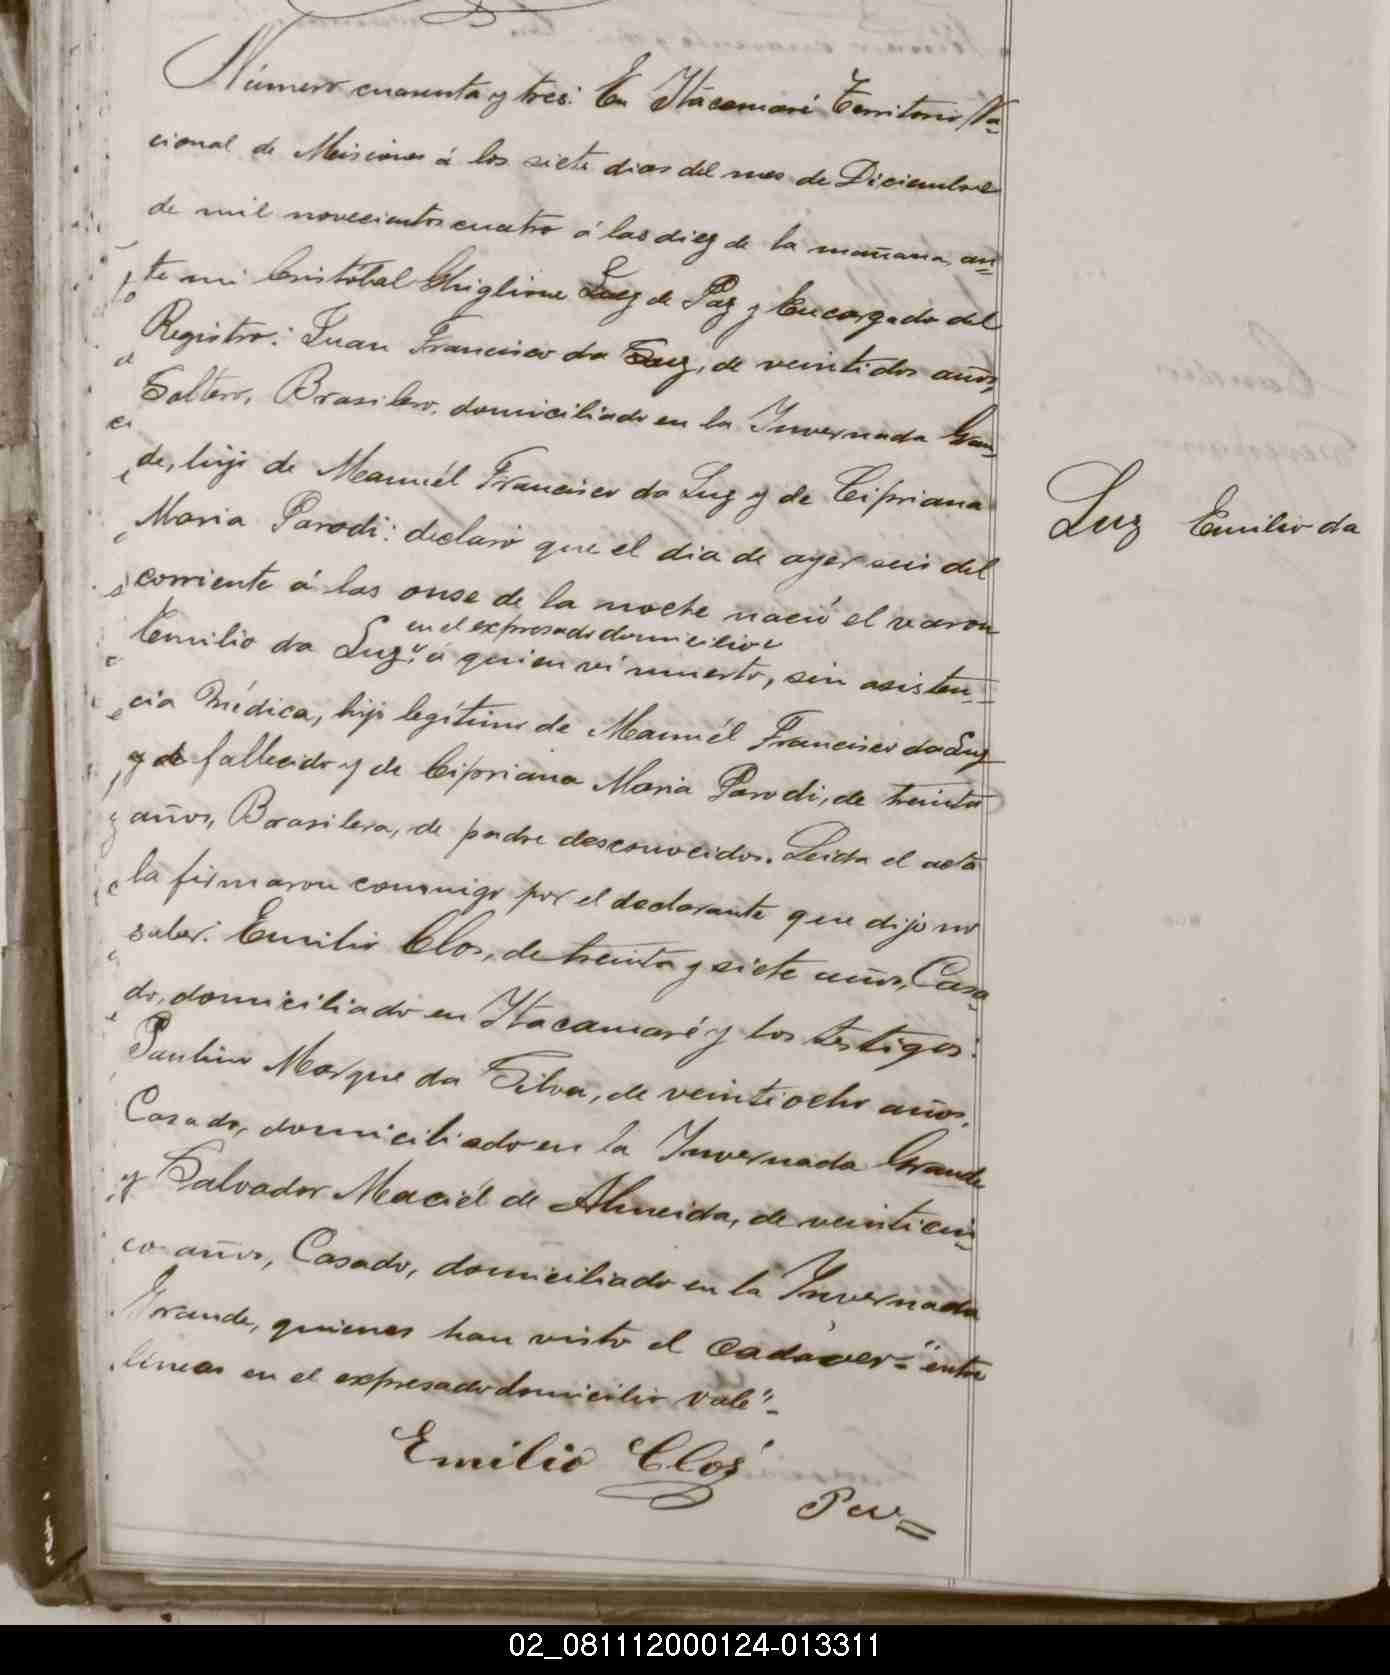 Número cuarenta y tres: En Itácamaré Territorio Na-
cional de Misiones á los siete dias del mes de Diciembre
de mil novecientos cuatro á las diez de la mañana, an-
te mi Cristóbal Ghiglione Juez de Paz y Encargado del
Registro: Juan Francisco da Luz, de veintidos años,
Soltero, Brasilero, domiciliado en la Invernada Gran-
de, hijo de Manuél Francisco da Luz y de Cipriana
Maria Parodi: declaró que el dia de ayer seis del
corriente á las onse de la noche nació el varon
en el expresado domicilio
Emilio da Luz," á quien vi muerto, sin asisten-
cia Médica, hijo legítimo de Manuél Francisco da Luz
y de fallecido y de Cipriana Maria Parodi, de treinta
años, Brasilera, de padre desconocidos. Leida el acta
la firmaron conmigo por el declarante que dijo no
saber. Emilio Clos, de treinta y siete años, Casa-
do, domiciliado en Itacamaré y los testigos:
Paulino Marque da Silva, de veintiocho años,
Casado, domiciliado en la Invernada Grande
y Salvador Maciél de Almeida, de veinticin-
co años, Casado, domiciliado en la Invernada
Grande, quienes han visto el cadáver="entre
lineas en el expresado domicilio vale"-
Emilio Clos
Luz Emilio da
02_081112000124-013311